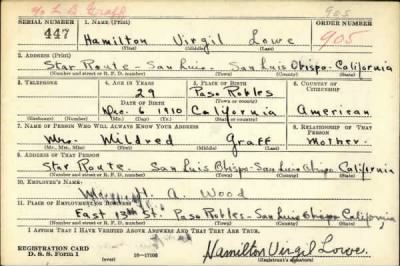 % L B Graff 905
SERIAL NUMBER 1. NAME (Print) ORDER NUMBER
447 Hamilton Virgil Lowe 905
(First) (Middle) (Last)
2. ADDRESS (Print)
Star Route - San Luis - San Luis Obispo - California
(Number and street or R. F. D. number) (Town) (County) (State)
3. TELEPHONE 4. AGE IN YEARS 5. PLACE OF BIRTH 6. COUNTRY OF CITIZENSHIP
29 Paso Robles
DATE OF BIRTH (Town or county)
Dec. 6 1910 California American
(Exchange) (Number) (Mo.) (Day) (Yr.) (State or country)
7. NAME OF PERSON WHO WILL ALWAYS KNOW YOUR ADDRESS 8. RELATIONSHIP OF THAT PERSON
Mrs. Mildred Graff Mother
(Mr., Mrs., Miss) (First) (Middle) (Last)
9. ADDRESS OF THAT PERSON
Star Route San Luis Obispo - San Luis Obispo California
(Number and street or R. F. D. number) (Town) (County) (State)
10. EMPLOYER'S NAME
H. A. Wood
11. PLACE OF EMPLOYMENT OR BUSINESS
East 13th St. Paso Robles - San Luis Obispo California
(Number and street or R. F. D. number) (Town) (County) (State)
I AFFIRM THAT I HAVE VERIFIED ABOVE ANSWERS AND THAT THEY ARE TRUE.
REGISTRATION CARD
D. S. S. Form 1 16-17105 Hamilton Virgil Lowe
(Registrant's signature)